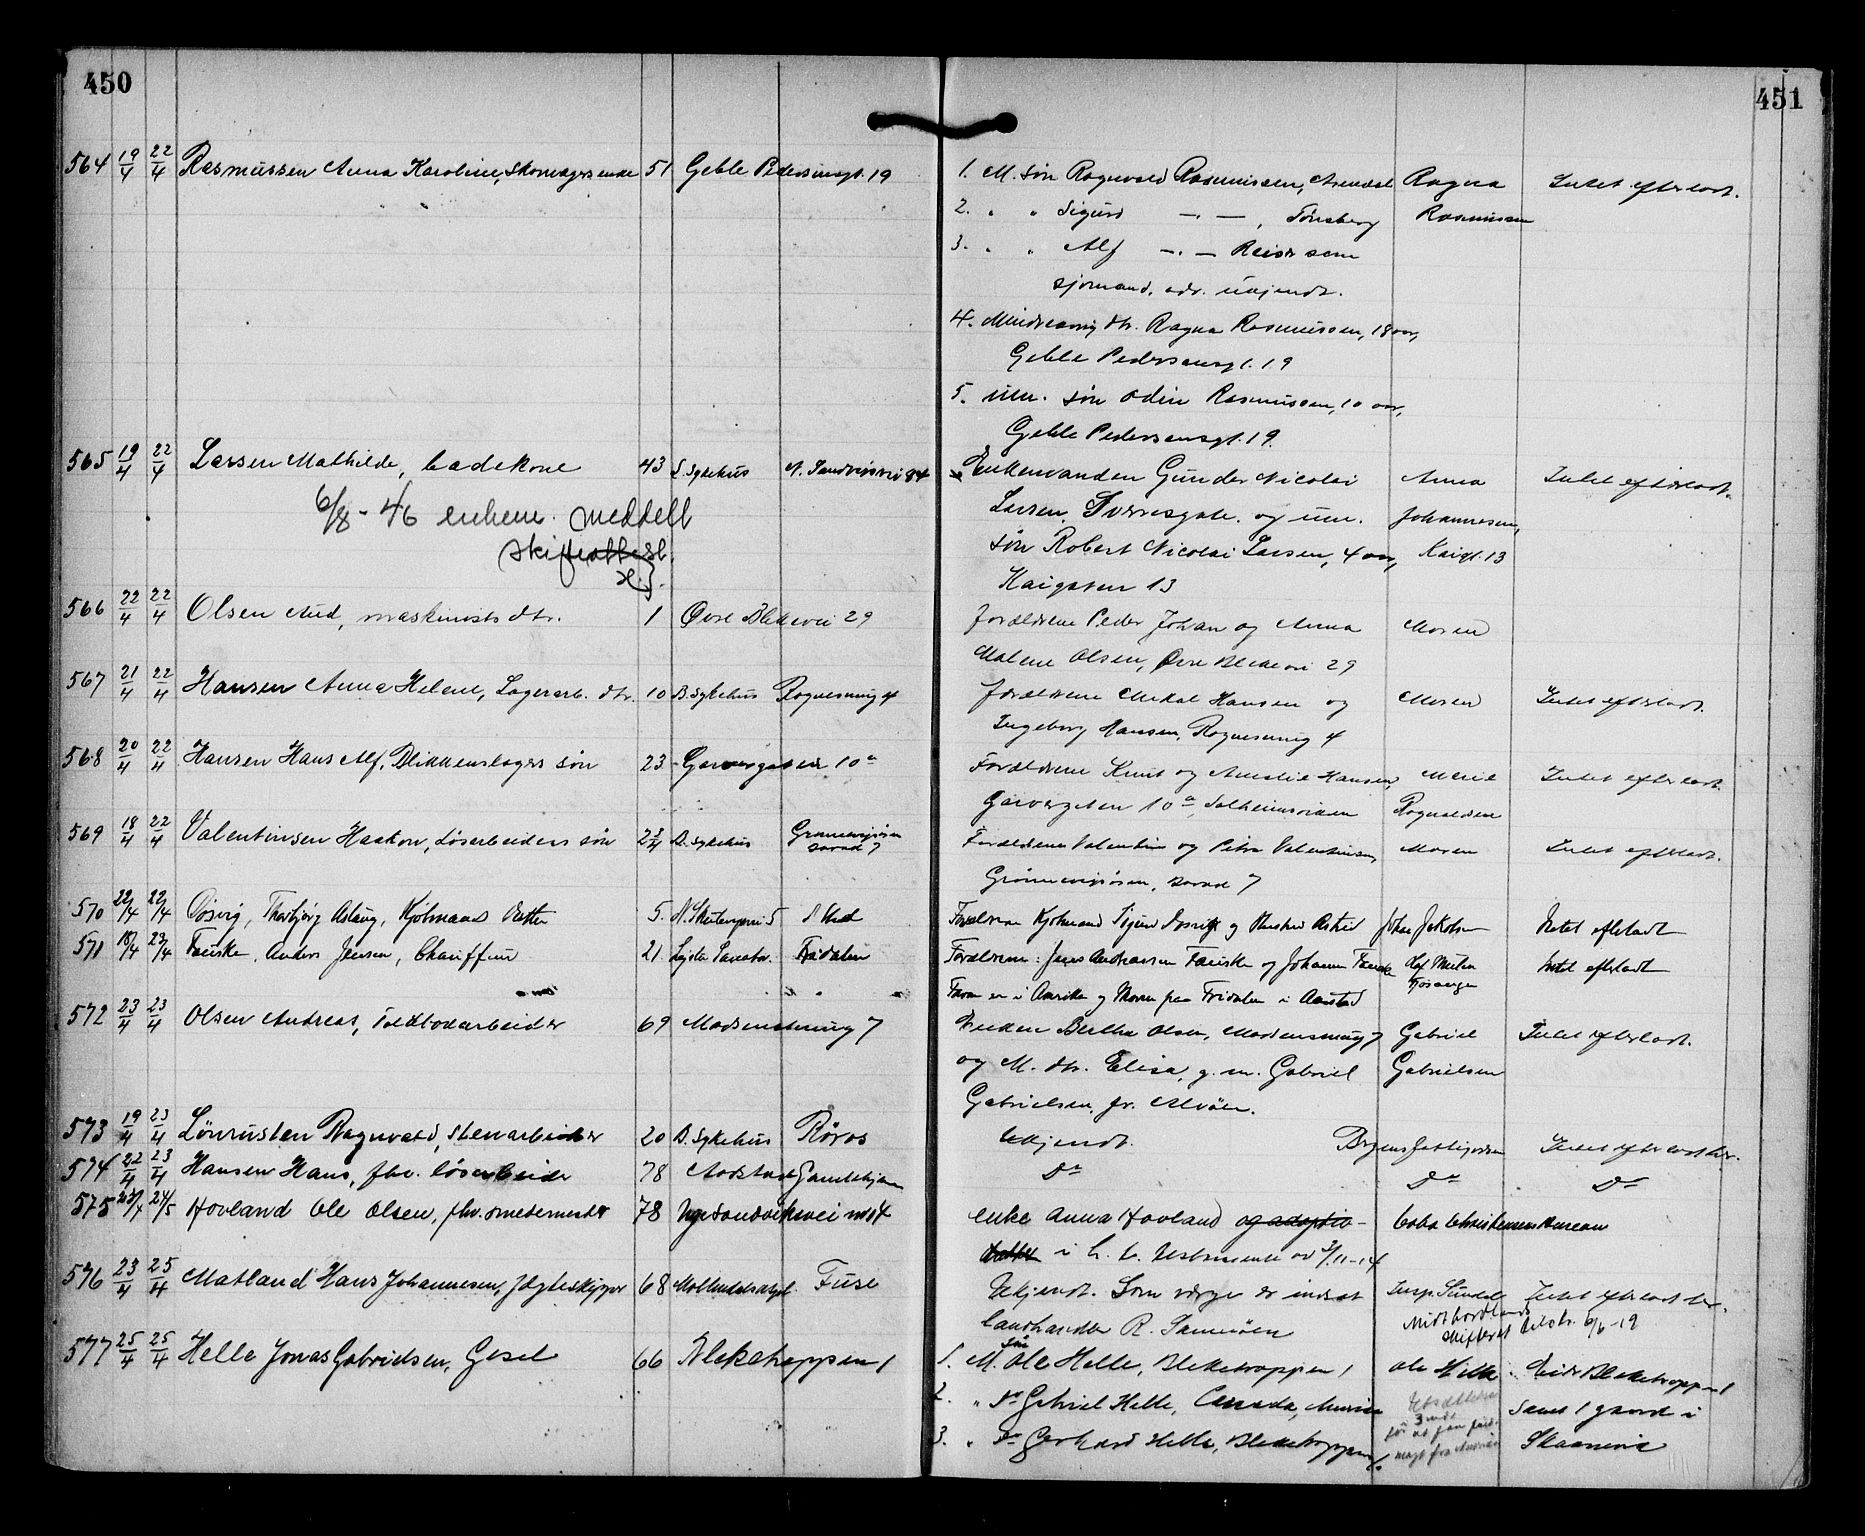 450
451
564 19/4 22/4 Rasmussen Anna Karoline, Skomagers enke 51 Geble Pedersensgt. 19
1. M. søn Ragnvald Rasmussen, Arendal Ragna Intet efterladt.
2. " " Sigurd —"— , Tönsberg Rasmussen
3. " " Alf —"— Reist som
sjømand, adr. ukjendt.
4. Mindreaarig dtr. Ragna Rasmussen, 18 aar,
Geble Pedersensgt. 19
5. um. søn Odin Rasmussen, 10 aar,
Geble Pedersensgt. 19.
565 19/4 22/4 Larsen Mathilde, badekone 43 S. Sykehus N. Sandviksvei 84
Enkemanden Gunder Nicolai Anna Intet efterladt.
6/8 - 46 enkem. meddelt
Larsen, Sverresgate. og um. Johannesen,
skifteattest.
søn Robert Nicolai Larsen, 4 aar, Kaigt. 13
Kaigaten 13
566 22/4 22/4 Olsen Aud, maskinists dtr. 1 Øvre Blekevei 29
Forældrene Peder Johan og Anna Moren
Malene Olsen, Øvre Blekevei 29
567 21/4 22/4 Hansen Anna Helene, Lagerarb. dtr. 10 B. Sykehus Rognesmug 4
Forældrene Mikal Hansen og Moren Intet efterladt.
Ingeborg Hansen, Rognesmug 4
568 20/4 22/4 Hansen Hans Alf, Blikkenslagers søn 23 Garvergaten 10a
Forældrene Knut og Amalie Hansen, Marie Intet efterladt.
Garvergaten 10a, Solheimsviken Ragnaldsen
569 18/4 22/4 Valentinsen Haakon, Løsarbeiders søn 2 3/4 B. Sykehus
Forældrene Valentin og Petra Valentinsen, Moren Intet efterladt.
570 22/4 22/4 Thorbjørg Aslaug, Kjøbmands Datter 5.
Forældrene Kjøbmand Sigurd og Astrid Johan Jakobsen Intet efterladt
571 18/4 22/4 Fauske, Anders Jensen, Chauffeur 21 Fridalen
Forældrene: Jens Andreassen Fauske og Johanne Fauske Intet efterladt
Faren er i Amerika og Moren paa Fridalen i Aarstad
572 23/4 23/4 Olsen Andreas, Toldbodarbeider 69 Madsensmug 7
Enken Berthe Olsen, Madsensmug 7 Gabriel Intet efterladt.
og M. dtr. Elisa, g. m. Gabriel Gabrielsen
Gabrielsen, pr. Alvøen.
573 19/4 23/4 Lönrusten Ragnvald, stenarbeider 20 B. Sykehus Røros
Ukjendt. Intet efterladt her.
574 22/4 23/4 Hansen Hans, fhv. løsarbeider 78 Aarstad Gamlehjem
Do Do Do
575 23/4 24/5 Hovland Ole Olsen, fhv. smedemester 78 Nye Sandviksvei
enke Anna Hovland Christensens Bureau
576 23/4 25/4 Matland Hans Johannesen, Jægteskipper 68 Fuse
Ukjendt. Som værge er indsat Insp. Intet efterladt her.
landhandler R. Midthordlands
skifteret 6/6-19
577 25/4 25/4 Helle Jonas Gabrielsen, Gesel 66 Bleketrappen 1
1. M. søn Ole Helle, Bleketrappen 1 Ole Helle. Eier Bleketrappen 1
2. " do Gabriel Helle, Canada, Amerika samt 1 gaard i
3. " do Gerhard Helle, Bleketrappen 1. Skaanevik